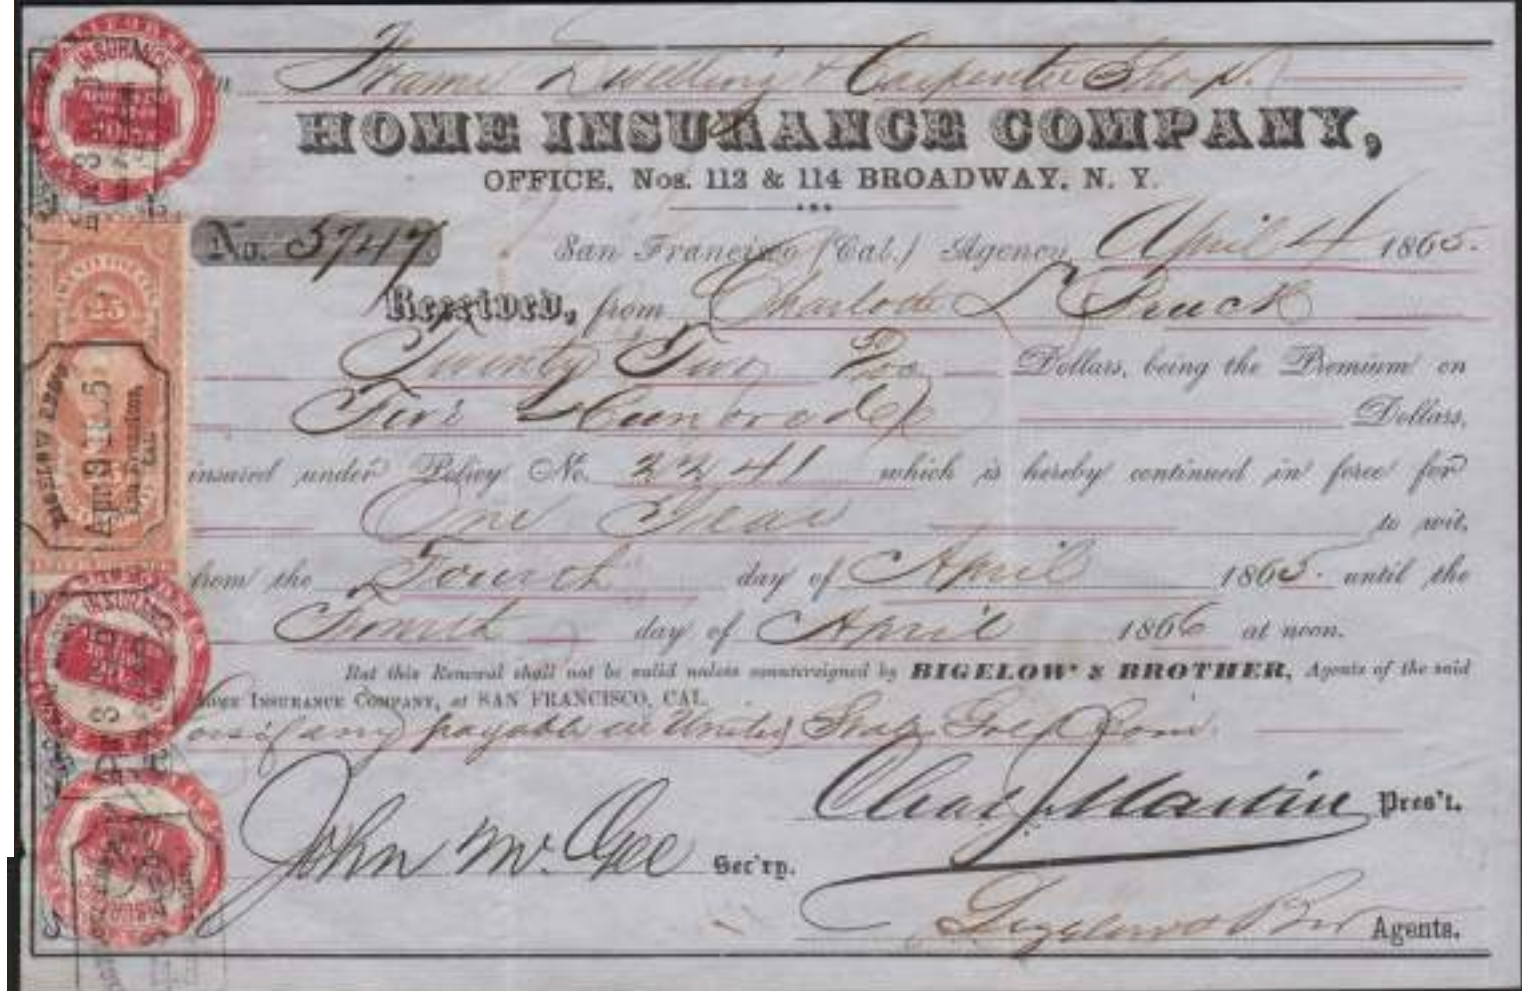 Frame Dwelling & Carpenter Shop.
HOME INSURANCE COMPANY,
OFFICE, Nos. 112 & 114 BROADWAY, N. Y.
No. 5747. San Francisco (Cal.) Agency April 4 1865.
Received, from Charlotte L
Twenty Two 50/100 Dollars, being the Premium on
Five Hundred Dollars,
insured under Policy No. 2241 which is hereby continued in force for
One Year to wit,
from the Fourth day of April 1865. until the
Fourth day of April 1866 at noon.
But this Renewal shall not be valid unless countersigned by BIGELOW & BROTHER, Agents of the said
HOME INSURANCE COMPANY, at SAN FRANCISCO, CAL.
if any payable in United States Gold Coin.
Chas J. Martin Pres't.
John McGee Sec'ry.
Bigelow & Bro Agents.
INSURANCE
25
BIGELOW & BROS
San Francisco,
CAL.
INSURANCE